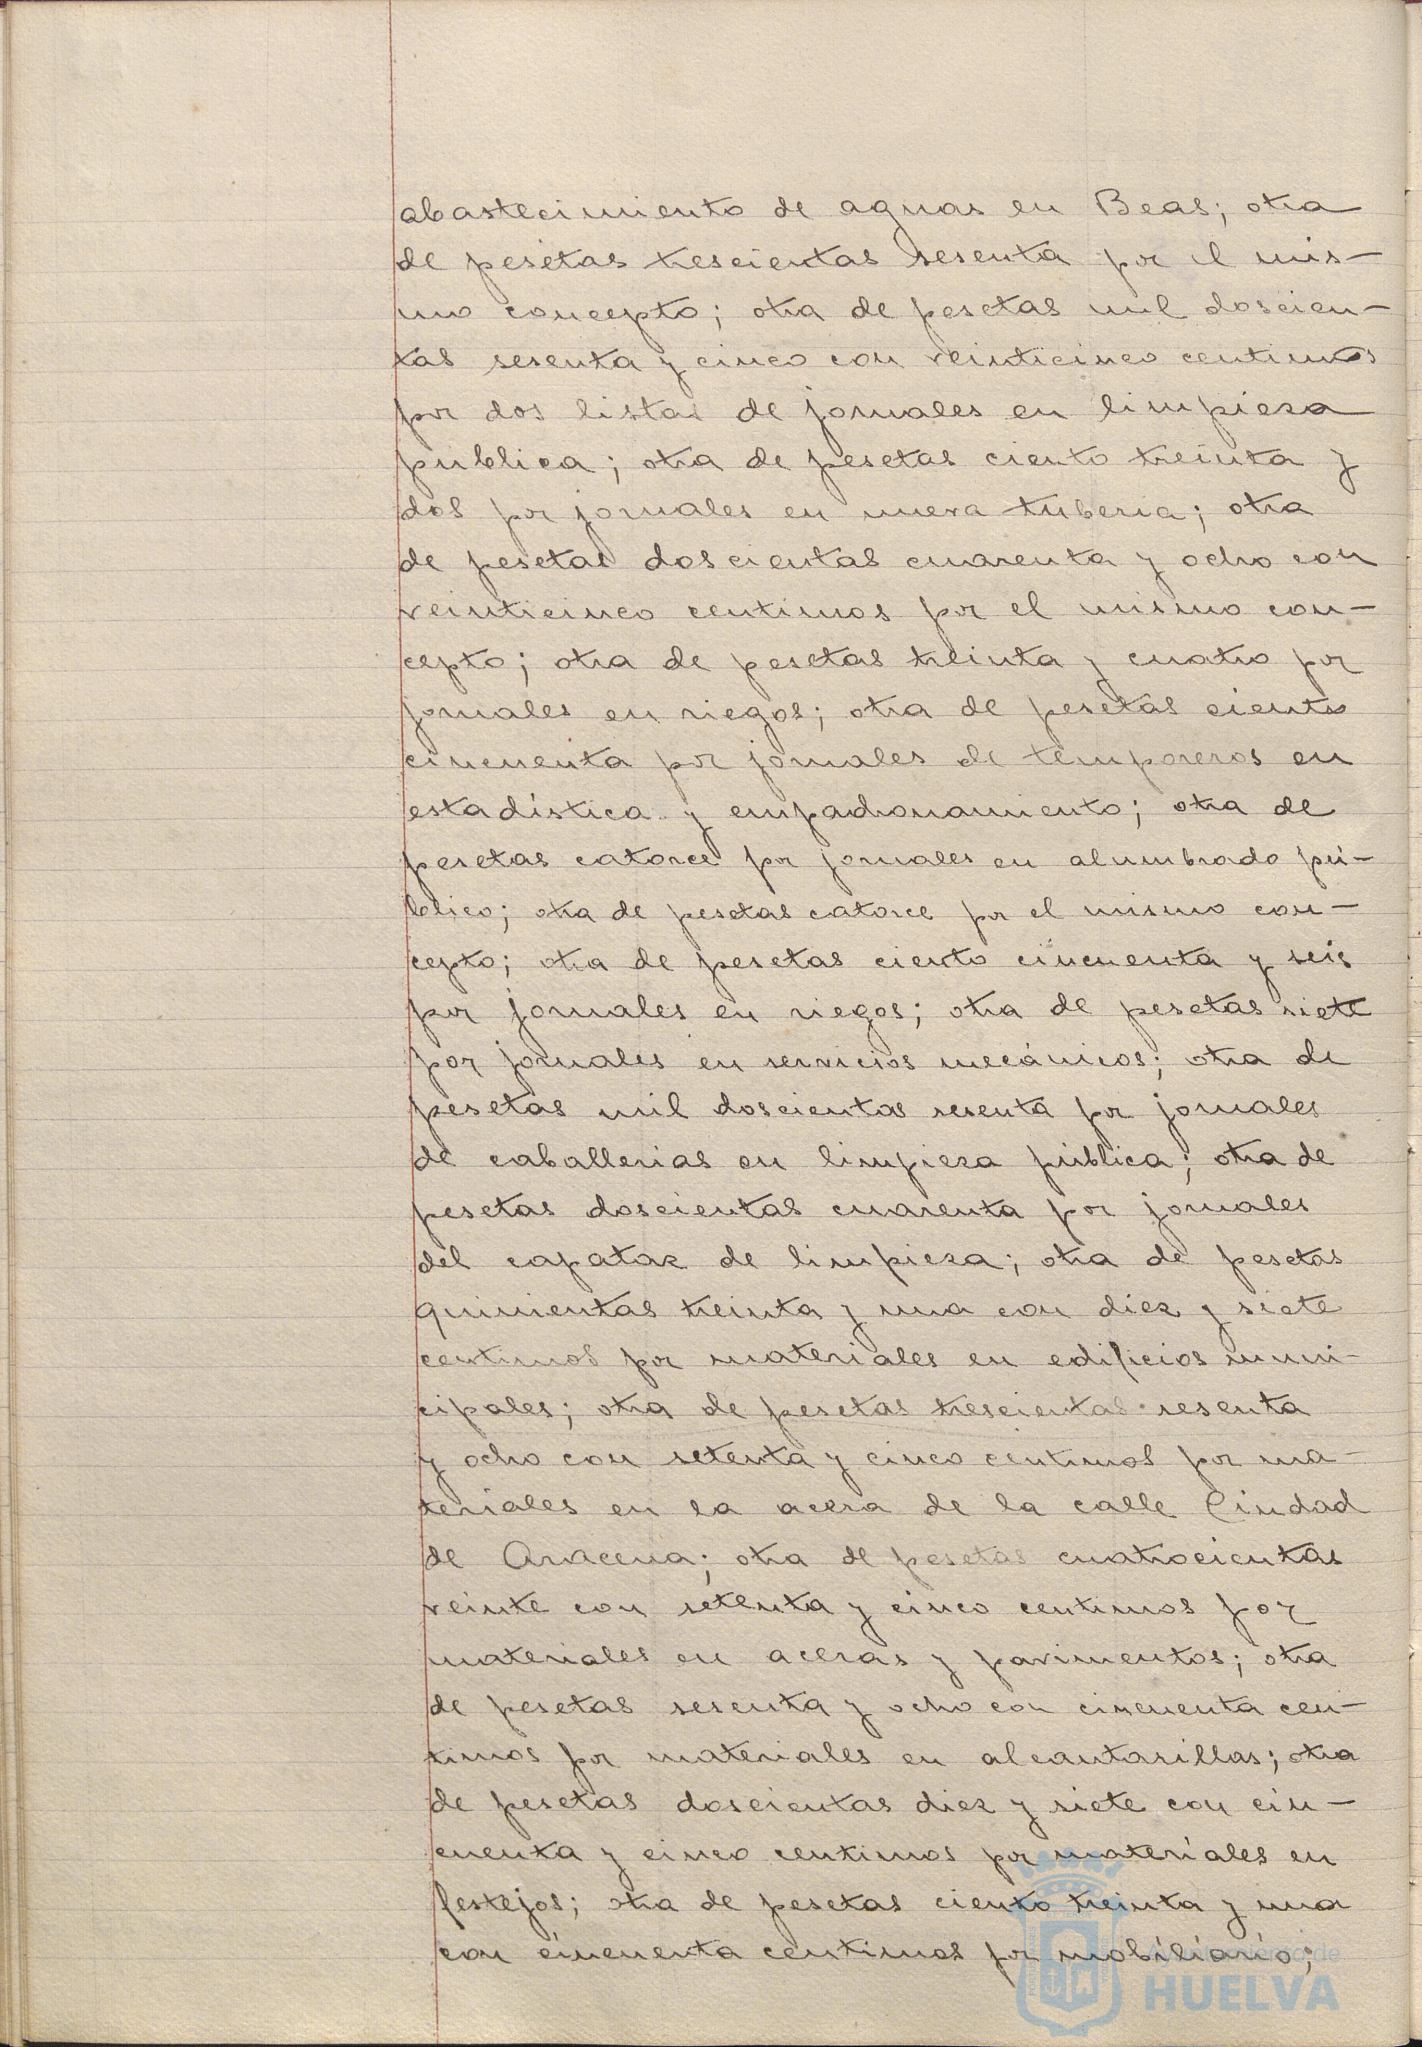 abastecimiento de aguas en Beas; otra
de pesetas trescientas sesenta por el mis-
mo concepto; otra de pesetas mil doscien-
tas sesenta y cinco con veinticinco centimos
por dos listas de jornales en limpieza
publica; otra de pesetas ciento treinta y
dos por jornales en nueva tuberia; otra
de pesetas doscientas cuarenta y ocho con
veinticinco centimos por el mismo con-
cepto; otra de pesetas treinta y cuatro por
jornales en riegos; otra de pesetas ciento
cincuenta por jornales de temporeros en
estadística y empadronamiento; otra de
pesetas catorce por jornales en alumbrado pú-
blico; otra de pesetas catorce por el mismo con-
cepto; otra de pesetas ciento cincuenta y seis
por jornales en riegos; otra de pesetas siete
por jornales en servicios mecánicos; otra de
pesetas mil doscientas sesenta por jornales
de caballerias en limpieza pública; otra de
pesetas doscientas cuarenta por jornales
del capataz de limpieza; otra de pesetas
quinientas treinta y una con diez y siete
centimos por materiales en edificios muni-
cipales; otra de pesetas trescientas sesenta
y ocho con setenta y cinco centimos por ma-
teriales en la acera de la calle Ciudad
de Aracena; otra de pesetas cuatrocientas
veinte con setenta y cinco centimos por
materiales en aceras y pavimentos; otra
de pesetas sesenta y ocho con cincuenta cen-
timos por materiales en alcantarillas; otra
de pesetas doscientas diez y siete con cin-
cuenta y cinco centimos por materiales en
festejos; otra de pesetas ciento treinta y una
con cincuenta centimos por mobiliario;
Ayuntamiento de
HUELVA